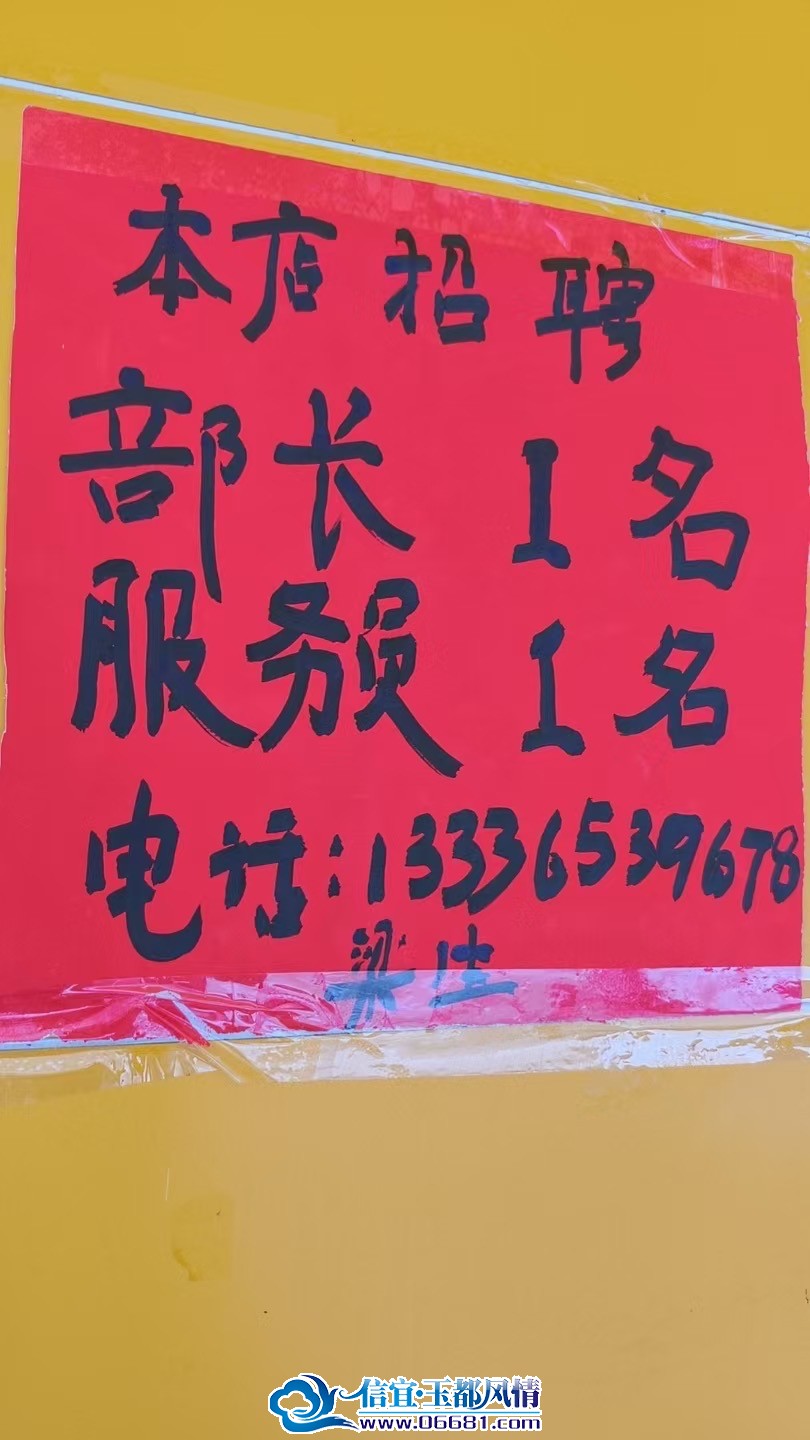 本店招聘
部长 1名
服务员 1名
电话:13336539678
梁生
信宜·玉都风情
www.06681.com